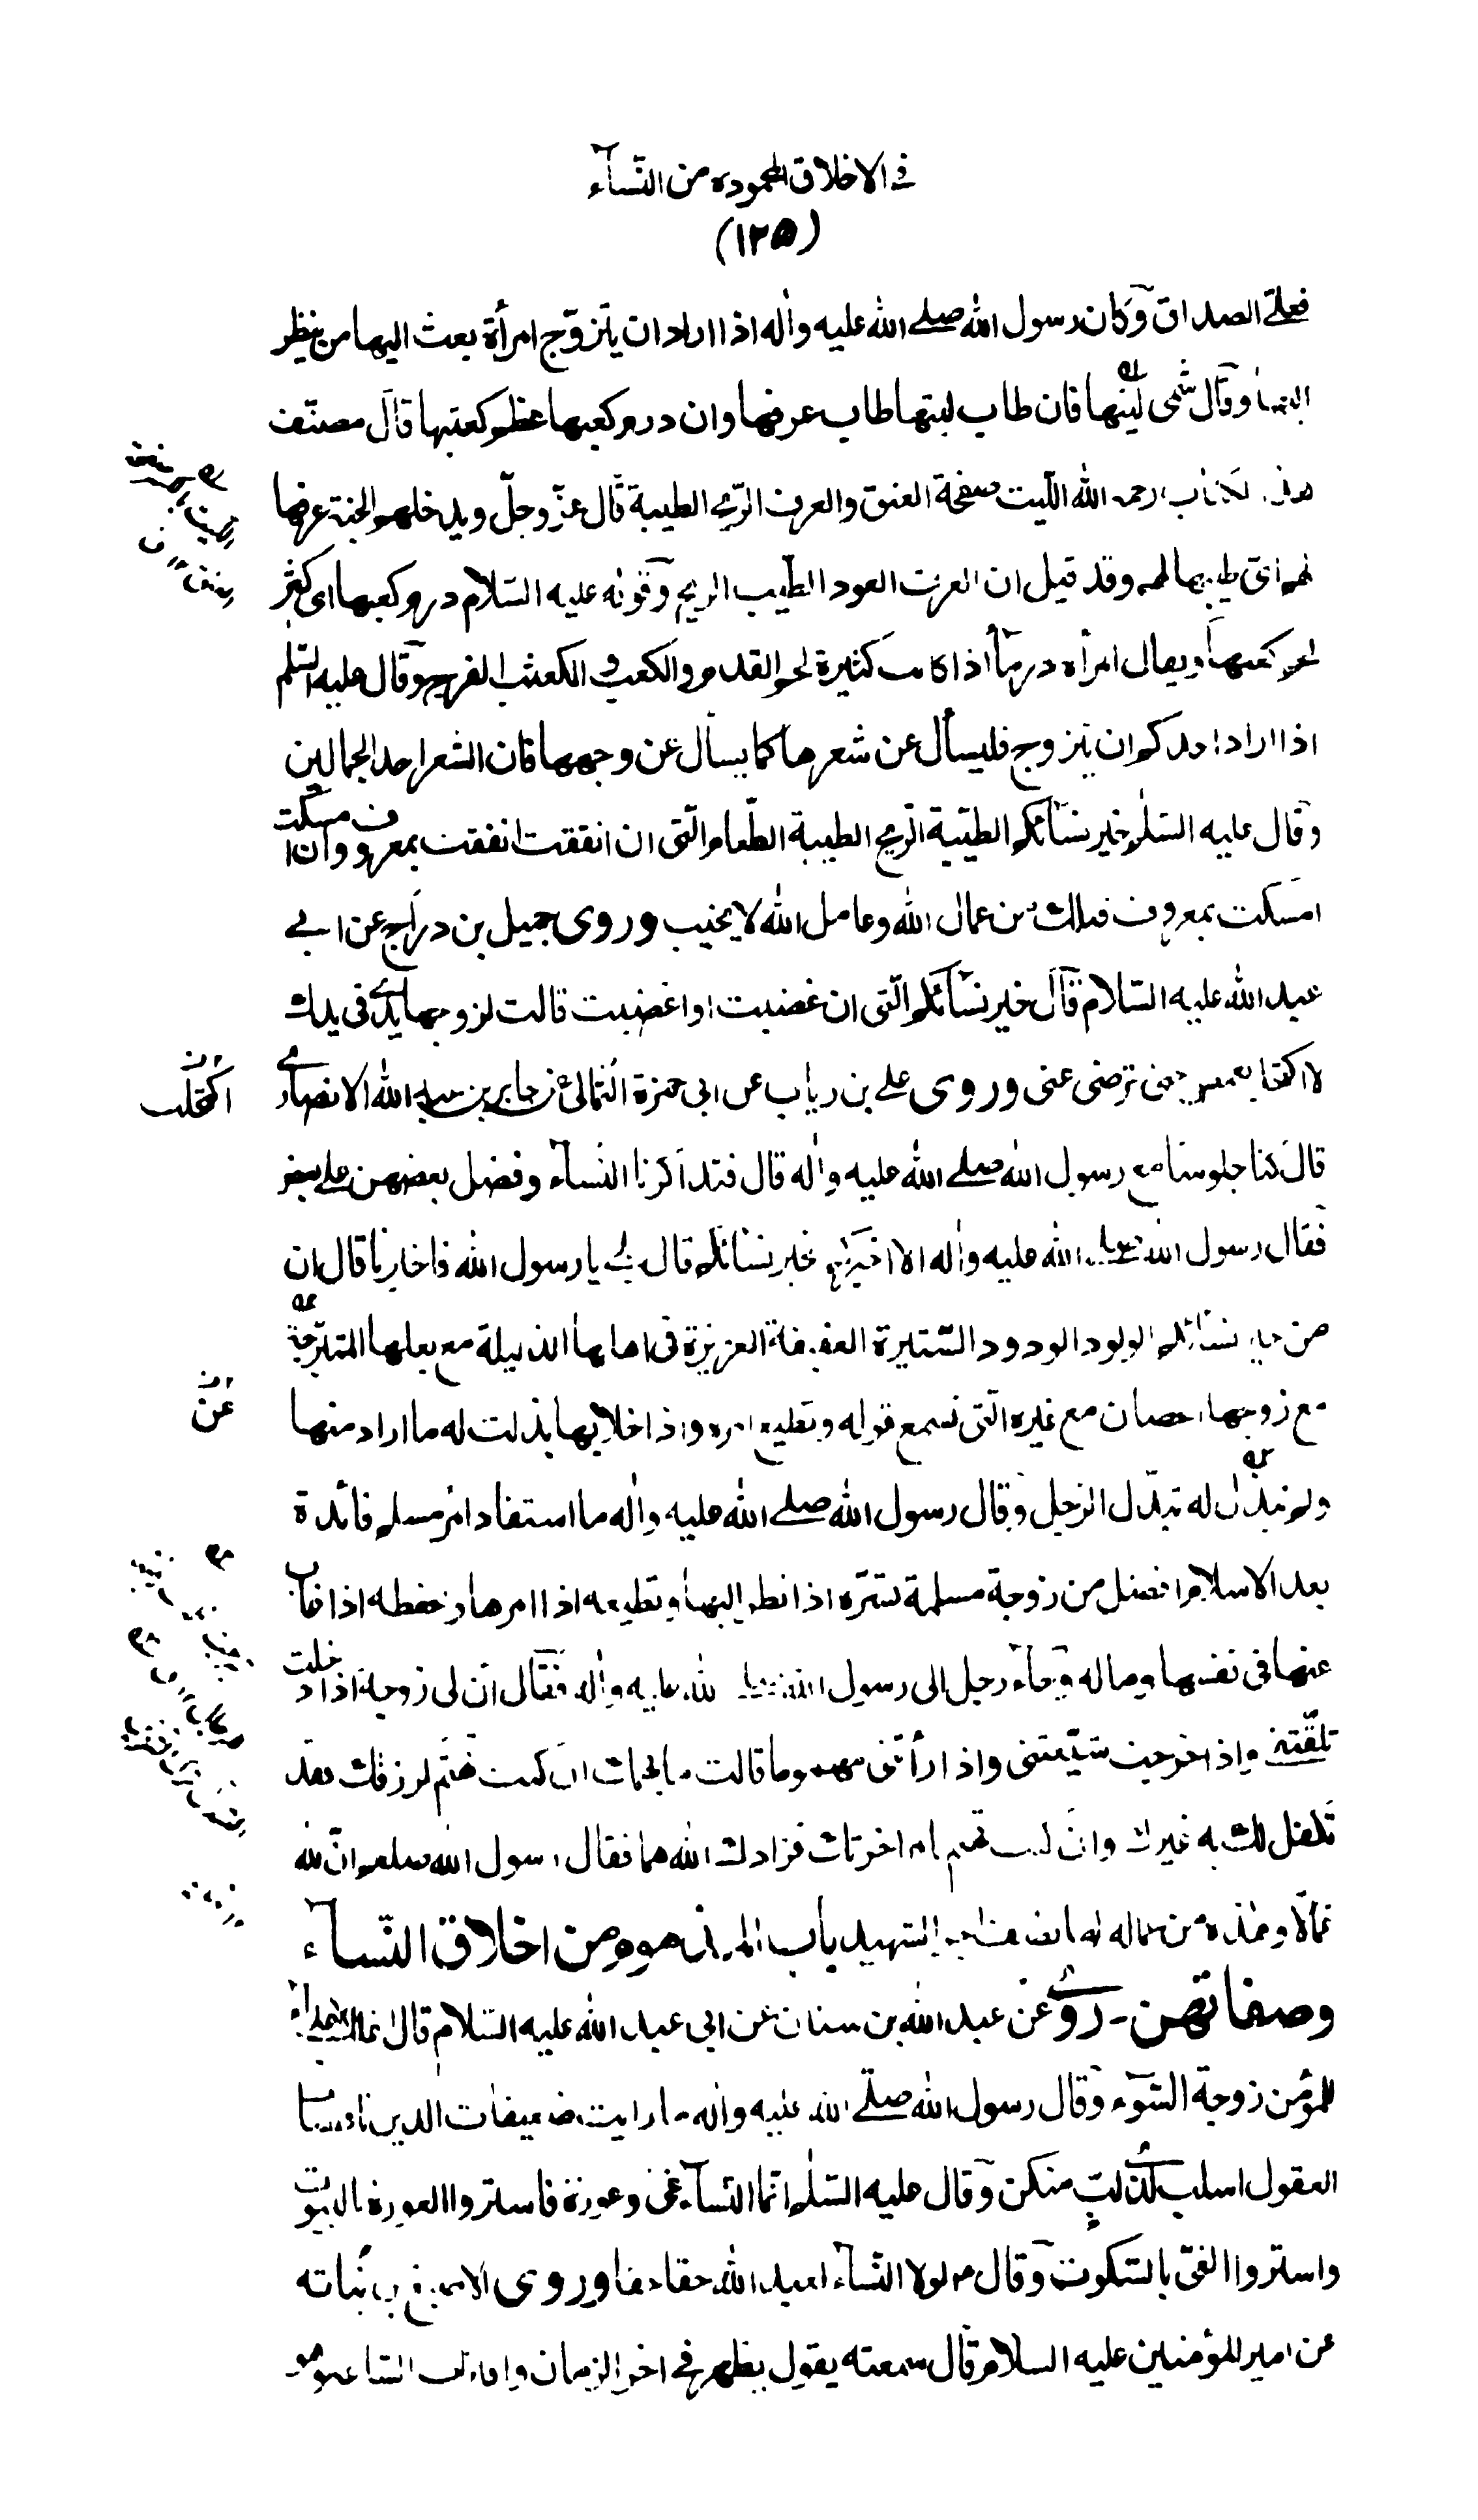 في الاخلاق المحموده من النسآء
(١٢٥)
فعلي الصداق وكان رسول الله صلى الله عليه واله اذا اراد ان يتزوج امرأة بعث اليها من ينظر
اليها وقال شمي ليتها فان طاب ليتها طاب عرفها وان درم كعبها عظم كعثبها قال مصنف
هذا الكتاب رحمه الله الليت صفحة العنق والعرف الريح الطيبة قال عز وجل ويدخلهم الجنة عرفها
لهم اى طيبها لهم وقد قيل ان العرف العود الطيب الريح وقوله عليه السلام درم كعبها اى كثر
لحم كعبها ويقال امرأة درمآ اذا كانت كثيرة لحم القدم والكعب والكعثب الفرج وقال عليه السلم
اذا اراد احدكم ان يتزوج فليسأل عن شعرها كما يسأل عن وجهها فان الشعر احد الجمالين
وقال عليه السلم خير نسائكم الطيبة الريح الطيبة الطعام التى ان انفقت انفقت بمعروف وان امسكت
امسكت بمعروف فتلك من عمال الله وعامل الله لا يخيب وروى جميل بن دراج عن ابي
عبد الله عليه السلام قال خير نسائكم التى ان غضبت او اغضبت قالت لزوجها يدى فى يدك
لا اكتحل بغمض حتى ترضى عنى وروى على بن رياب عن ابى حمزة الثمالى عن جابر بن عبد الله الانصارى
اكتحلت
قال كنا جلوسا مع رسول الله صلى الله عليه واله قال فتذاكرنا النسآء وفضل بعضهن على بعض
فقال رسول الله صلى الله عليه واله الا اخبركم بخير نسائكم قال بلى يا رسول الله فاخبرنا قال ان
من خير نسائكم الولود الودود الستيرة العفيفة العزيزة فى اهلها الذليلة مع بعلها المتبرجة
مع زوجها الحصان مع غيره التى تسمع قوله وتطيع امره واذا خلا بها بذلت له ما اراد منها
عن
ولم تبذل له تبذل الرجل وقال رسول الله صلى الله عليه واله ما استفاد امرء مسلم فائدة
بعد الاسلام افضل من زوجة مسلمة تسره اذا نظر اليها وتطيعه اذا امرها وتحفظه اذا غاب
عنها فى نفسها وماله وجاء رجل الى رسول الله صلى الله عليه واله فقال ان لى زوجة اذا دخلت
تلقتنى واذا خرجت شيعتنى واذا رأتنى مهموما قالت ما يهمك ان كنت تهتم لرزقك فقد
تكفل لك به غيرك وان كنت تهتم بامر اخرتك فزادك الله هما فقال رسول الله صلعم ان لله
عمالا وهذه من عماله لها نصف اجر الشهيد باب المذموم من اخلاق النسآء
وصفاتهن - روى عن عبد الله بن سنان عن ابى عبد الله عليه السلام قال اغلب الاعداء
للمؤمن زوجة السوء وقال رسول الله صلى الله عليه واله ما رايت ضعيفات الدين ناقصات
العقول اسلب لذى لب منكن وقال عليه السلم انما النسآء عى وعورة فاستروا العورة بالبيوت
واستروا العى بالسكوت وقال ع لولا النسآء لعبد الله حقا حقا وروى الاصبغ بن نباته
عن امير المؤمنين عليه السلام قال سمعته يقول يظهر فى اخر الزمان واقتراب الساعة وهو